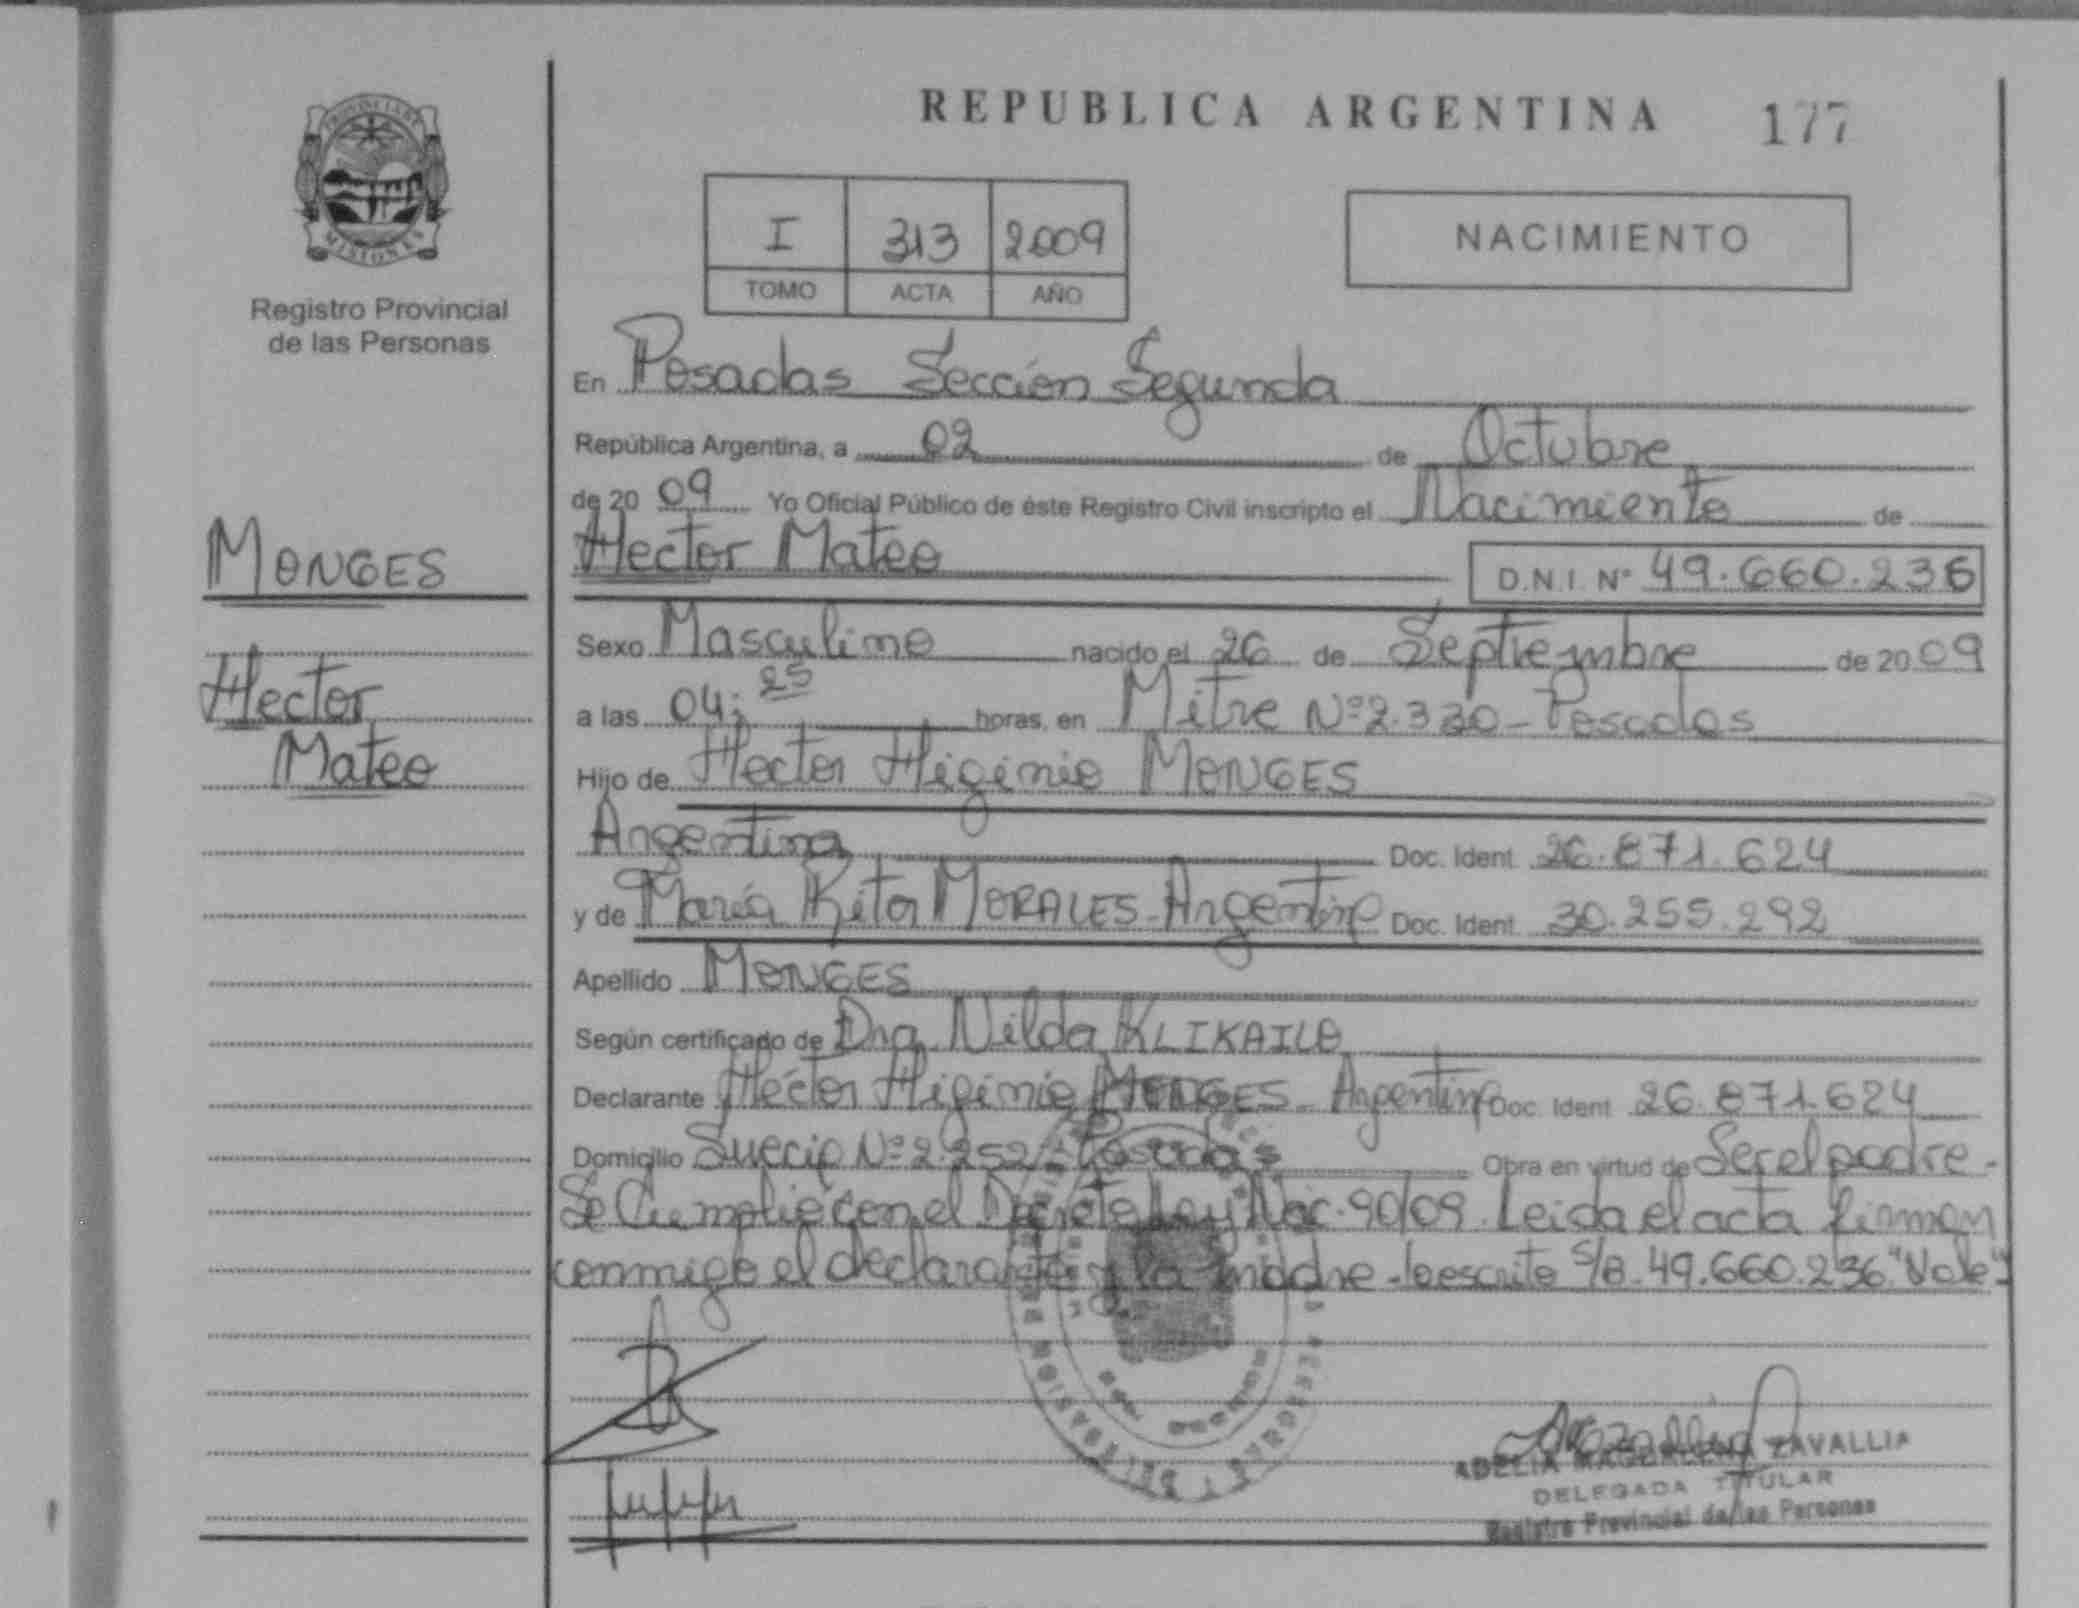 REPUBLICA ARGENTINA 177
PROVINCIA DE
MISIONES
Registro Provincial
de las Personas
I 313 2009
TOMO ACTA AÑO
NACIMIENTO
En Posadas Sección Segunda
República Argentina, a 02 de Octubre
de 20 09 Yo Oficial Público de éste Registro Civil inscripto el Nacimiento de
MONGES
Hector Mateo D.N.I. Nº 49.660.236
Sexo Masculino nacido el 26 de Septiembre de 20 09
Hector
Mateo
a las 04:25 horas, en Mitre Nº 2.330 - Posadas
Hijo de Hector Higinio MONGES
Argentina Doc. Ident. 26.871.624
y de María Rita MORALES - Argentina Doc. Ident. 30.255.292
Apellido MONGES
Según certificado de Dra. Nilda KLIKAILO
Declarante Héctor Higinio MONGES - Argentina Doc. Ident. 26.871.624
Domicilio Suecia Nº 2252 - Posadas Obra en virtud de Ser el padre -
Se Cumplió con el Decreto Ley Nac. 90/09. Leida el acta firman
conmigo el declarante y la madre - lo escrito S/B. 49.660.236 "Vale"-
ADELIA MAGDALENA ZAVALLIA
DELEGADA TITULAR
Registro Provincial de las Personas